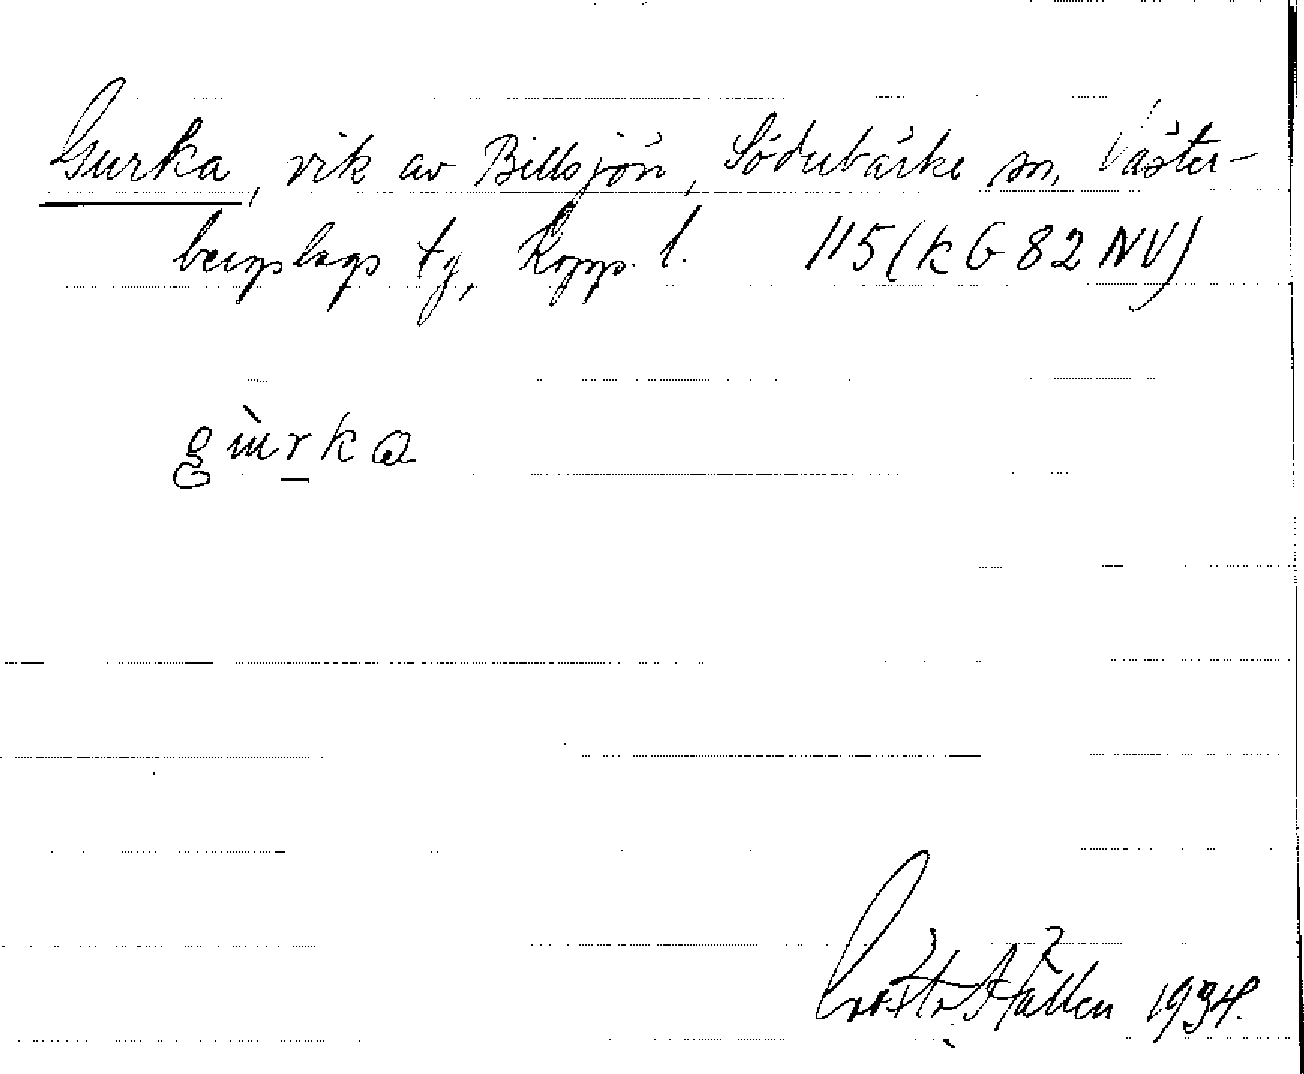 Gurka, vik av Billsjön, Söderbärke sn, Väster-
bergslags tg, Kopp. l. 115 (k G 82 NV)
gùrka
Gösta Hallen 1934.